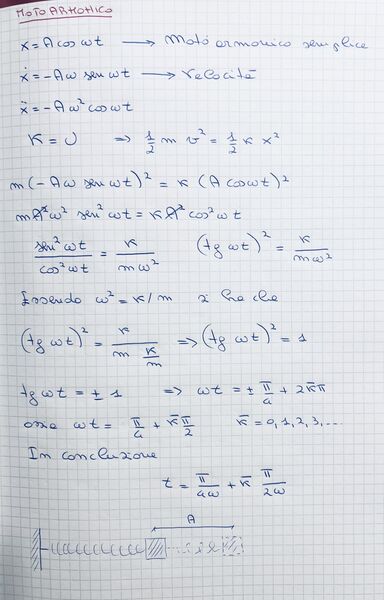 MOTO ARMONICO
x = A cos ωt → Moto armonico semplice
ẋ = -Aω sen ωt → Velocità
ẍ = -Aω² cos ωt
K = U ⇒ 1/2 m v² = 1/2 κ x²
m(-Aω sen ωt)² = κ (A cos ωt)²
mA²ω² sen² ωt = κA² cos² ωt
sen² ωt / cos² ωt = κ / mω² (tg ωt)² = κ / mω²
Essendo ω² = κ/m si ha che
(tg ωt)² = κ / (m κ/m) ⇒ (tg ωt)² = 1
tg ωt = ± 1 ⇒ ωt = ± π/4 + 2κ̄π
ossia ωt = π/4 + κ̄ π/2 κ̄ = 0, 1, 2, 3, ...
In conclusione
t = π/4ω + κ̄ π/2ω
A